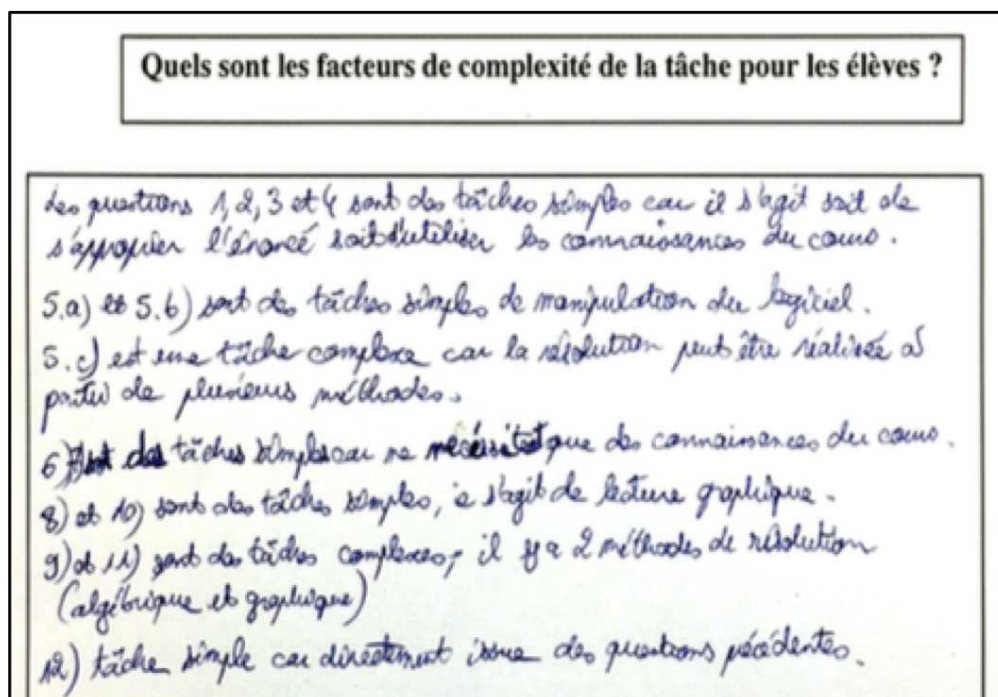 Quels sont les facteurs de complexité de la tâche pour les élèves ?
Les questions 1, 2, 3 et 4 sont des tâches simples car il s'agit soit de
s'approprier l'énoncé soit d'utiliser les connaissances du cours.
5.a) et 5.b) sont des tâches simples de manipulation du logiciel.
5.c) est une tâche complexe car la résolution peut être réalisée à
partir de plusieurs méthodes.
6) des tâches simples car ne nécessitet que des connaissances du cours.
8) et 10) sont des tâches simples, il s'agit de lecture graphique.
9) et 11) sont des tâches complexes, il y a 2 méthodes de résolution
(algébrique et graphique)
12) tâche simple car directement issue des questions précédentes.